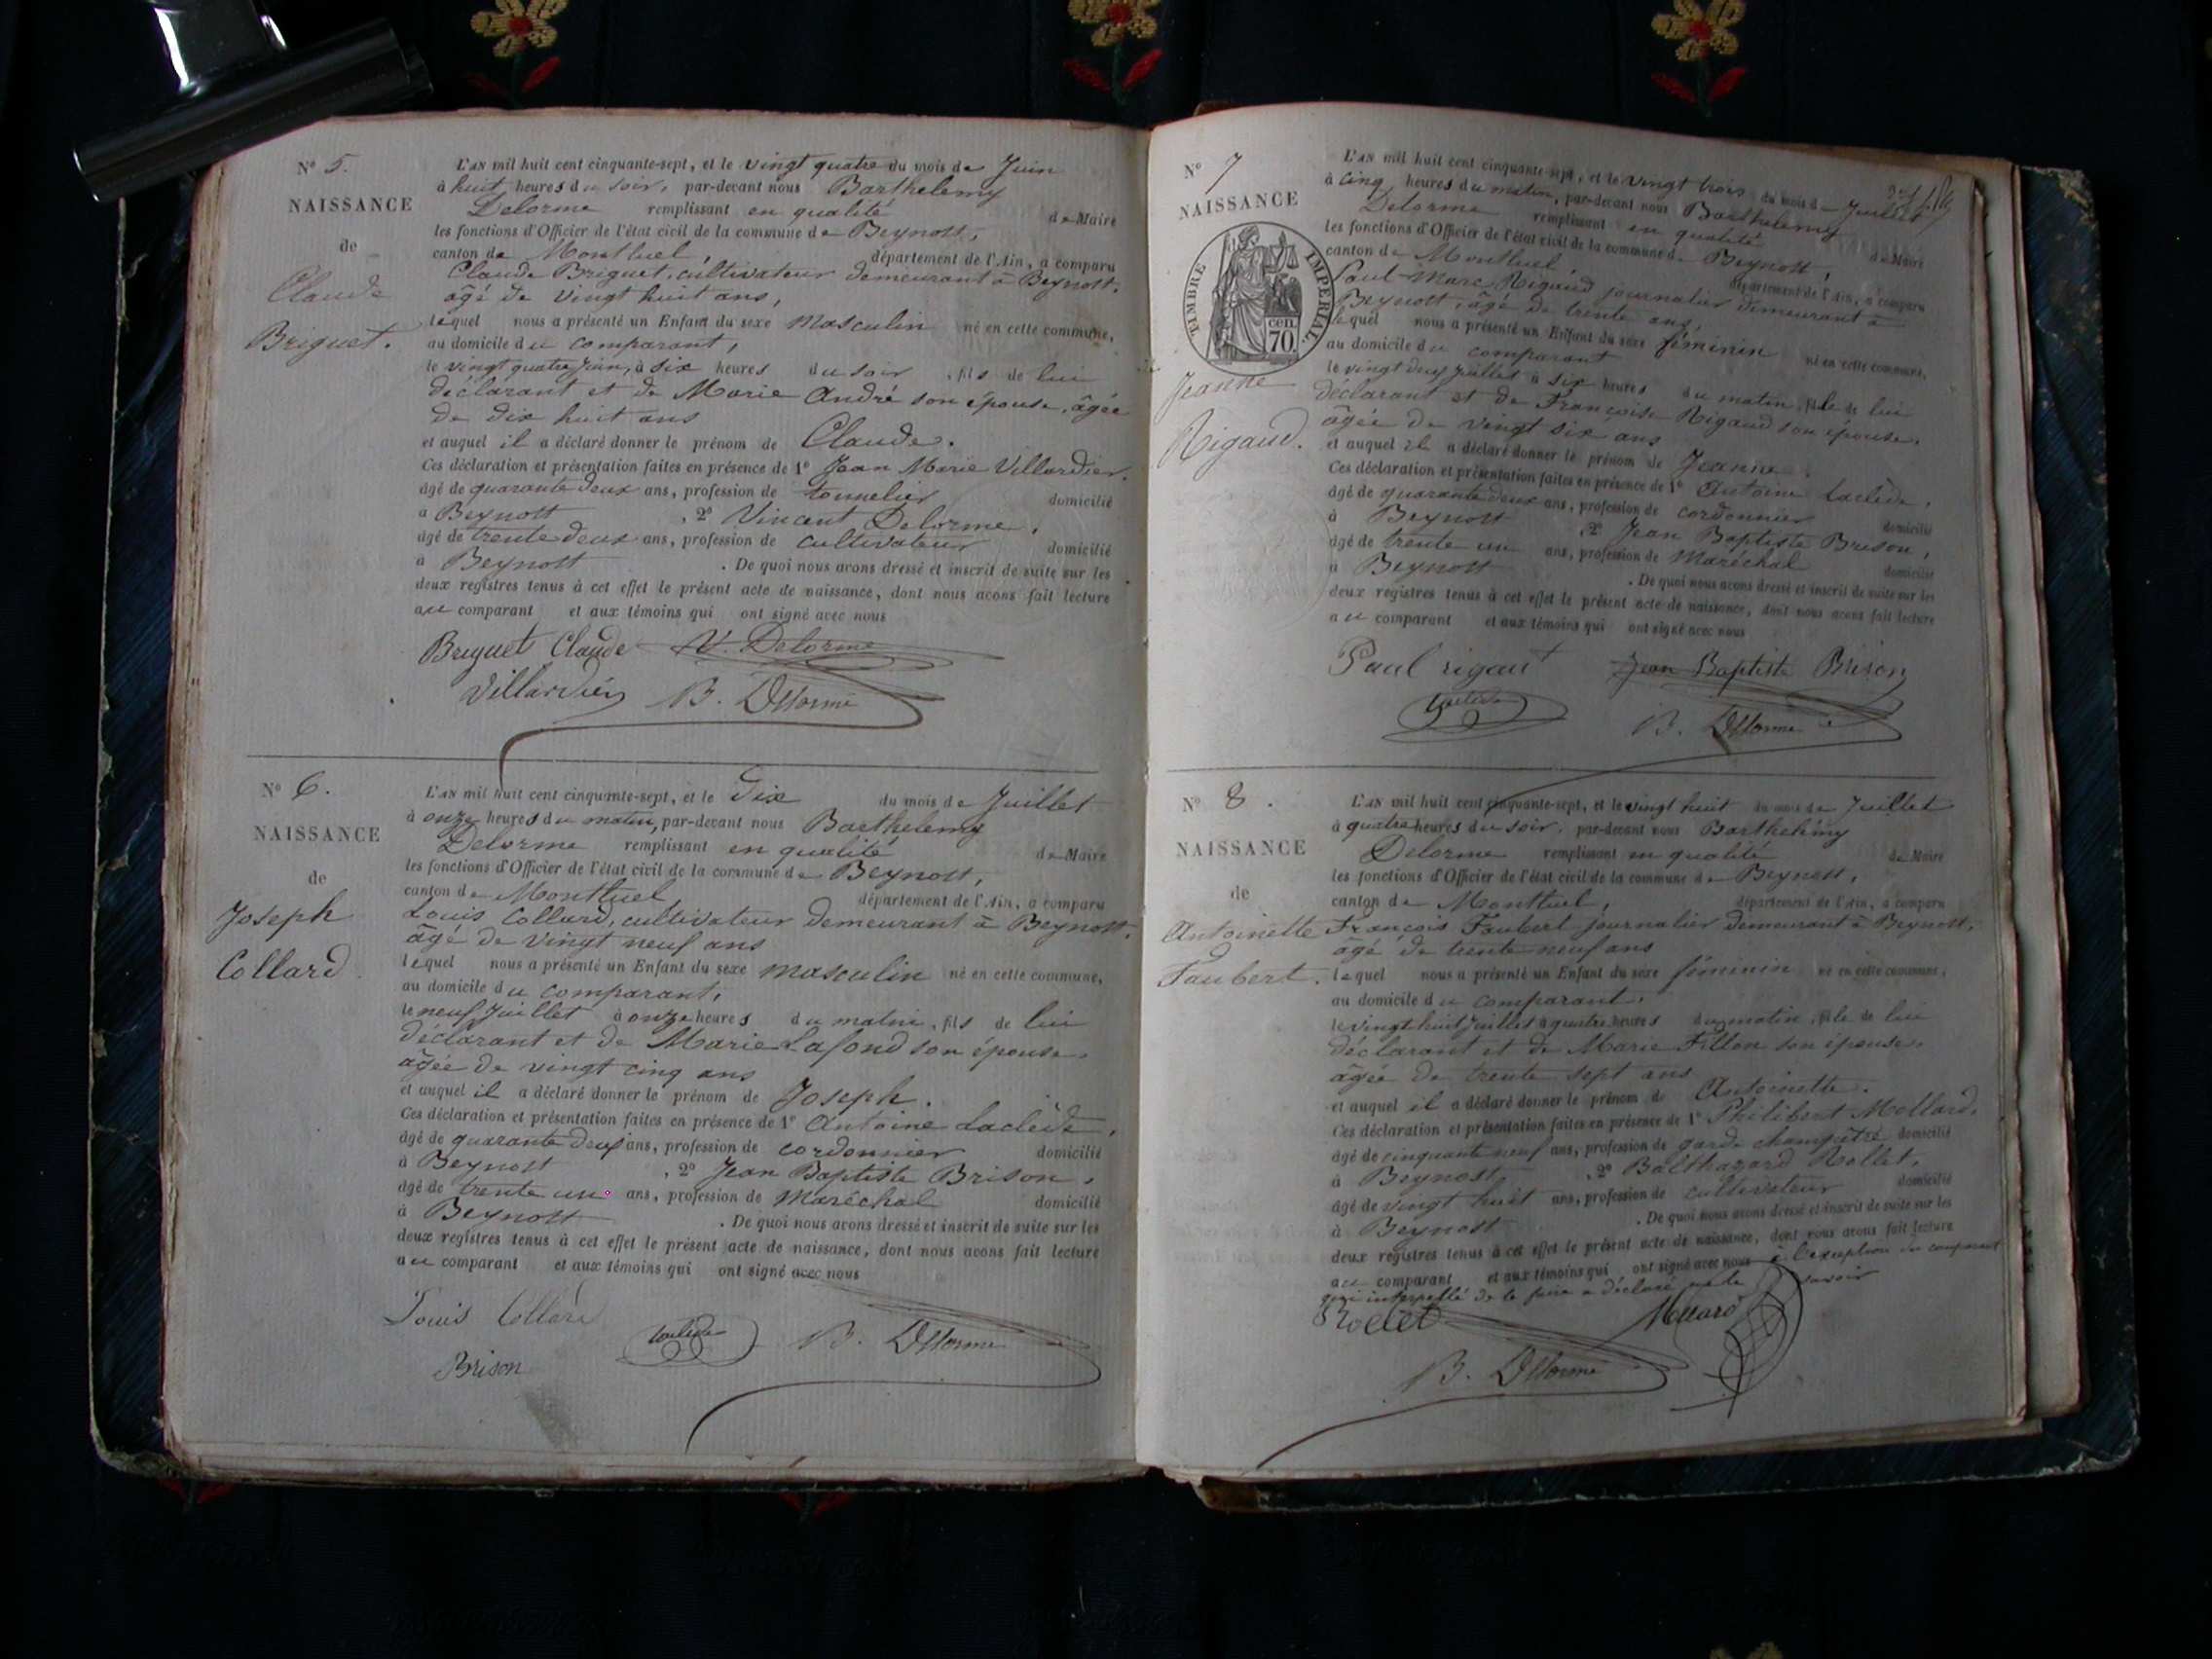 N° 5.
NAISSANCE
de
Claude
Briguet.
L'AN mil huit cent cinquante-sept, et le vingt quatre du mois de Juin
à huit heures du soir, par-devant nous Barthelemy
Delorme remplissant en qualité de Maire
les fonctions d'Officier de l'état civil de la commune de Beynost,
canton de Montluel, département de l'Ain, a comparu
Claude Briguet, cultivateur demeurant à Beynost,
âgé de vingt huit ans,
lequel nous a présenté un Enfant du sexe masculin né en cette commune,
au domicile du comparant,
le vingt quatre Juin, à six heures du soir, fils de lui
déclarant et de Marie André son épouse, âgée
de dix huit ans
et auquel il a déclaré donner le prénom de Claude.
Ces déclaration et présentation faites en présence de 1° Jean Marie Villardier,
âgé de quarante deux ans, profession de tonnelier domicilié
à Beynost, 2° Vincent Delorme,
âgé de trente deux ans, profession de cultivateur domicilié
à Beynost. De quoi nous avons dressé et inscrit de suite sur les
deux registres tenus à cet effet le présent acte de naissance, dont nous avons fait lecture
au comparant et aux témoins qui ont signé avec nous
Briguet Claude V. Delorme
Villardier B. Delorme
N° 6.
NAISSANCE
de
Joseph
Collard
L'AN mil huit cent cinquante-sept, et le dix du mois de Juillet
à onze heures du matin, par-devant nous Barthelemy
Delorme remplissant en qualité de Maire
les fonctions d'Officier de l'état civil de la commune de Beynost,
canton de Montluel, département de l'Ain, a comparu
Louis Collard, cultivateur demeurant à Beynost,
âgé de vingt neuf ans
lequel nous a présenté un Enfant du sexe masculin né en cette commune,
au domicile du comparant,
le neuf Juillet à onze heures du matin, fils de lui
déclarant et de Marie Lafond son épouse,
âgée de vingt cinq ans
et auquel il a déclaré donner le prénom de Joseph.
Ces déclaration et présentation faites en présence de 1° Antoine Laclède,
âgé de quarante deux ans, profession de cordonnier domicilié
à Beynost, 2° Jean Baptiste Brison,
âgé de trente un ans, profession de Maréchal domicilié
à Beynost. De quoi nous avons dressé et inscrit de suite sur les
deux registres tenus à cet effet le présent acte de naissance, dont nous avons fait lecture
au comparant et aux témoins qui ont signé avec nous
Louis Collard
B. Delorme
Brison
N° 7
NAISSANCE
TIMBRE IMPERIAL.
cen.
70
Jeanne
Rigaud.
L'AN mil huit cent cinquante-sept, et le vingt trois du mois de Juillet
à cinq heures du matin, par-devant nous Barthelemy
Delorme remplissant en qualité de Maire
les fonctions d'Officier de l'état civil de la commune de Beynost,
canton de Montluel, département de l'Ain, a comparu
Paul Marc Rigaud journalier demeurant à
Beynost, âgé de trente ans,
lequel nous a présenté un Enfant du sexe féminin né en cette commune,
au domicile du comparant
le vingt deux Juillet à six heures du matin, fille de lui
déclarant et de Françoise Rigaud son épouse,
âgée de vingt six ans
et auquel il a déclaré donner le prénom de Jeanne.
Ces déclaration et présentation faites en présence de 1° Antoine Laclède,
âgé de quarante deux ans, profession de cordonnier domicilié
à Beynost, 2° Jean Baptiste Brison,
âgé de trente un ans, profession de Maréchal domicilié
à Beynost. De quoi nous avons dressé et inscrit de suite sur les
deux registres tenus à cet effet le présent acte de naissance, dont nous avons fait lecture
au comparant et aux témoins qui ont signé avec nous
Paul rigaut Jean Baptiste Brison
B. Delorme
N° 8.
NAISSANCE
de
Antoinette
Faubert.
L'AN mil huit cent cinquante-sept, et le vingt huit du mois de Juillet
à quatre heures du soir, par-devant nous Barthelemy
Delorme remplissant en qualité de Maire
les fonctions d'Officier de l'état civil de la commune de Beynost,
canton de Montluel, département de l'Ain, a comparu
François Faubert journalier demeurant à Beynost,
âgé de trente neuf ans
lequel nous a présenté un Enfant du sexe féminin né en cette commune,
au domicile du comparant,
le vingt huit Juillet à quatre heures du matin, fille de lui
déclarant et de Marie Fillon son épouse,
âgée de trente sept ans
et auquel il a déclaré donner le prénom de Antoinette.
Ces déclaration et présentation faites en présence de 1° Philibert Mollard,
âgé de cinquante neuf ans, profession de garde champêtre domicilié
à Beynost, 2° Balthazard Rollet,
âgé de vingt huit ans, profession de cultivateur domicilié
à Beynost. De quoi nous avons dressé et inscrit de suite sur les
deux registres tenus à cet effet le présent acte de naissance, dont nous avons fait lecture
au comparant et aux témoins qui ont signé avec nous à l'exception du comparant
qui interpellé de le faire a déclaré ne le savoir
Rollet Mollard
B. Delorme